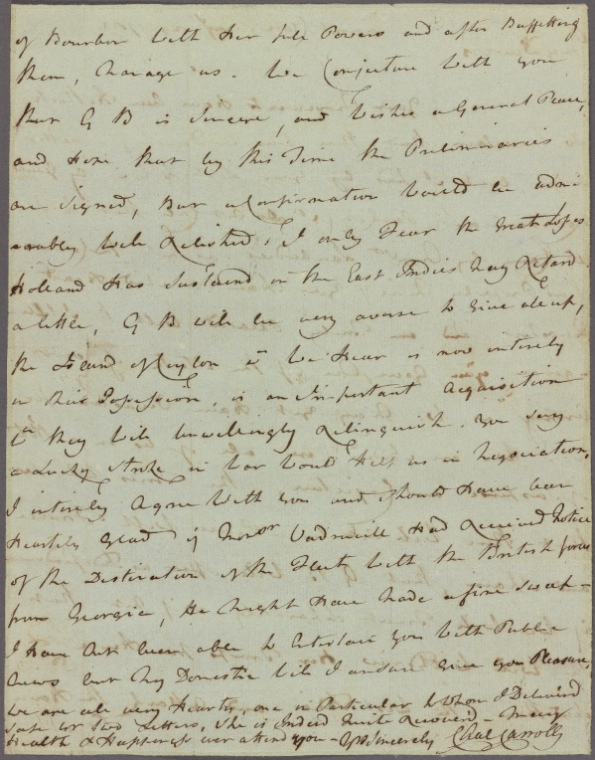 of Bourbon with Her full Powers and after Buffetting
them, Manage us. We Conjecture with you
that G B is Sincere, and wishes a General Peace,
and Hope that by this Time the Preliminaries
are Signed, But a Confirmation would be admi
=rably well Relished, I only Fear the Great Losses
Holland Has Sustained in the East Indies may Retard
a little, G B will be very averse to Give all up,
the Island of Ceylon wh We Hear is now intirely
in their Possession, is an Important Acquisition
wh they will unwillingly Relinquish. You say
a Lucky Stroke in War would Help us in Negociation,
I intirely Agree With you and should Have been
Heartily Glad if Monsr Vadrieull Had Received Notice
of the Destination of the Fleet with the British forces
from Georgia, He might Have made a fine Sweep—
I Have not been able to Entertain you with Public
News but my Domestic will I am sure Give you Pleasure,
We are all very Hearty, one in Particular to Whom I Delivered
safe yr two Letters, She is Indeed Quite Recovered — Many
Health & Happiness ever attend you — Yrs Sincerely Chas Carroll